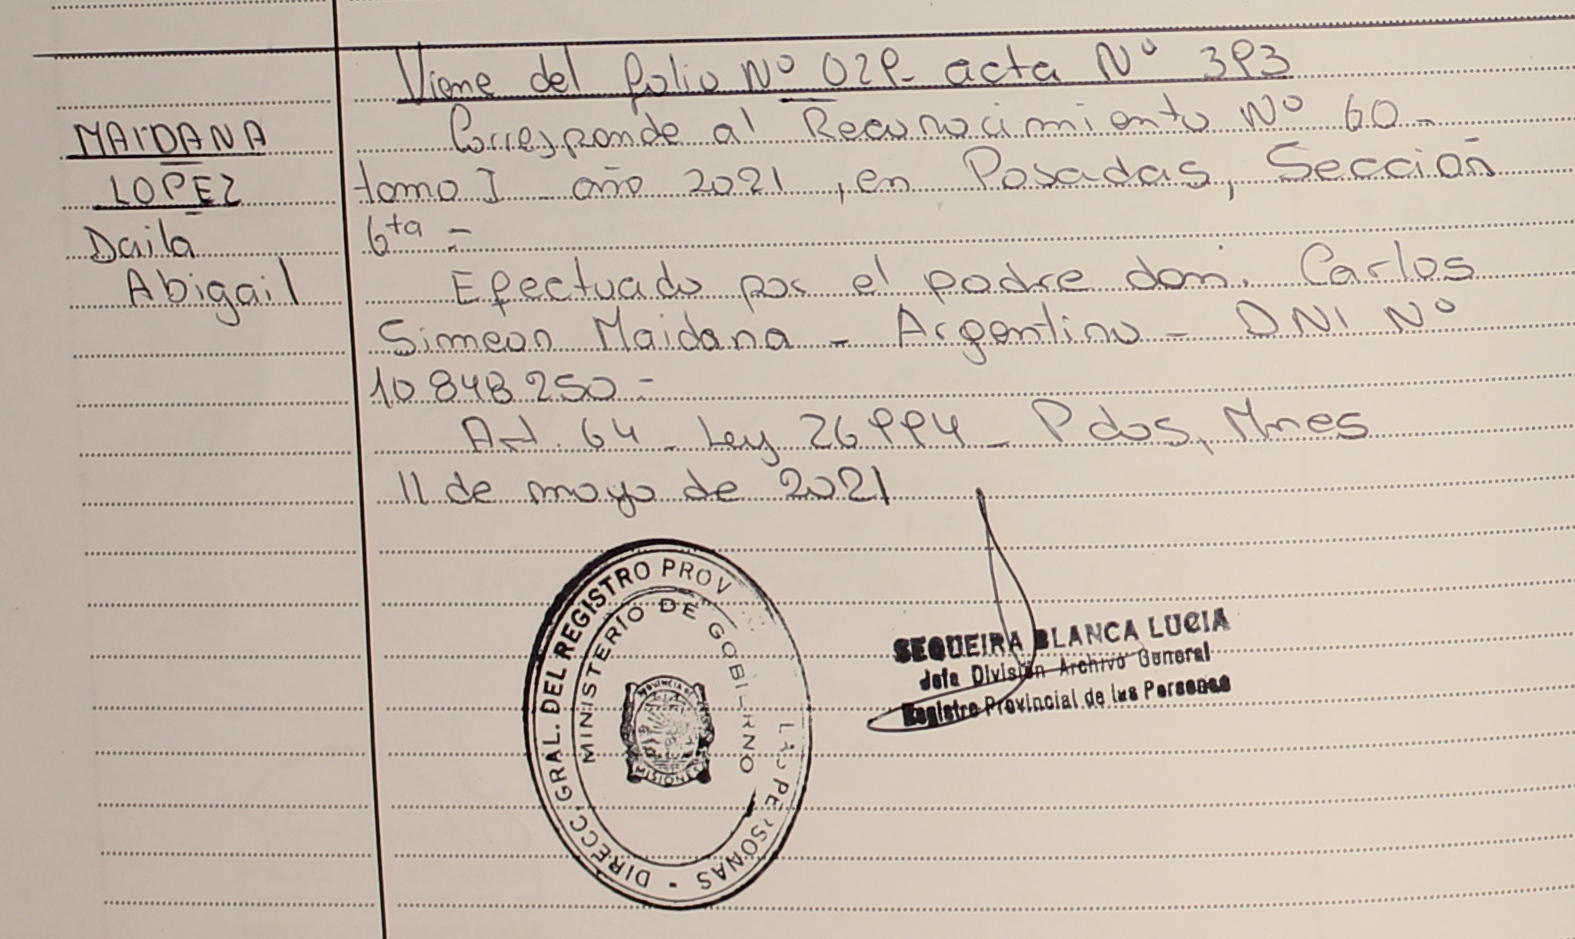 MAIDANA
LOPEZ
Daila
Abigail
Viene del folio Nº 029- acta Nº 393
Corresponde al Reconocimiento Nº 60-
tomo I año 2021, en Posadas, Sección
6ta =
Efectuado por el padre don. Carlos
Simeon Maidana - Argentino - DNI Nº
10848250=
Art. 64 - Ley 26994 - Pdas, Mnes
11 de mayo de 2021
DIRECC. GRAL. DEL REGISTRO PROV LAS PERSONAS
MINISTERIO DE GOBIERNO
PROVINCIA DE
MISIONES
SEQUEIRA BLANCA LUCIA
Jefa División Archivo General
Registro Provincial de las Personas